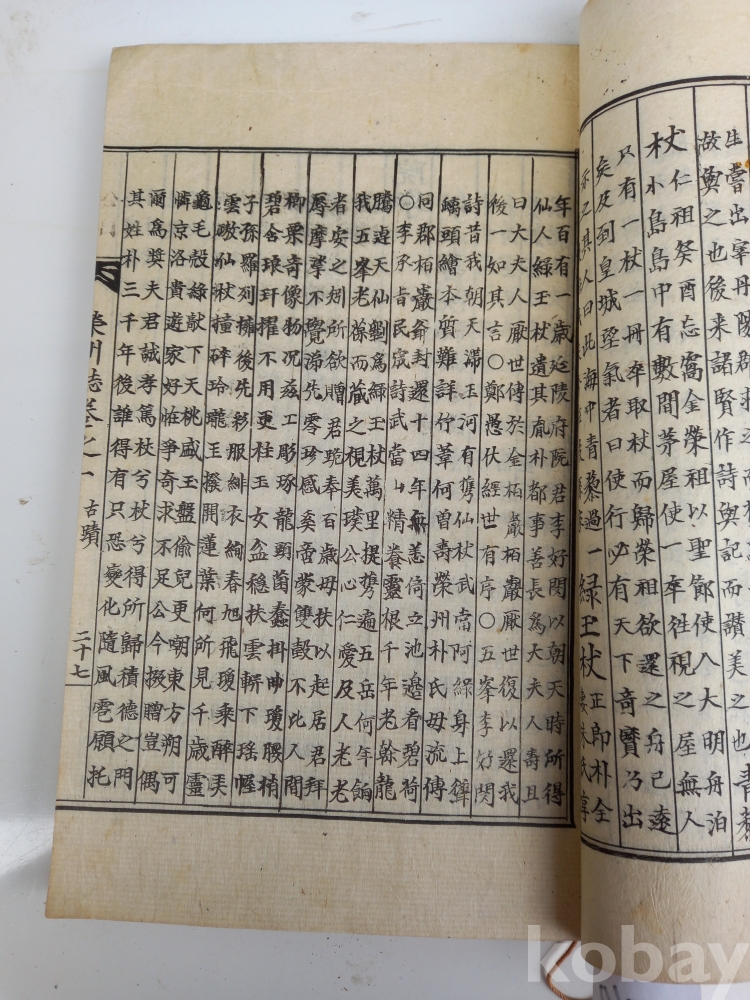 倣奠之也後来諸郡賢作詩與記而讃美之
杖 仁祖癸酉忘窩金榮祖以聖節使入大明舟泊
小島島中有數間茅屋使一卒徃視之屋無人
只有一杖一冊卒取杖而歸榮祖欲還之舟已遠
矣及到皇城望氣者曰使行必有天下奇寶乃出
之其人曰此海中青藜過一 綠玉杖 正郎朴全
年百有一歲延陵府院君李好閔以朝天時所得
仙人綠玉杖遺其胤朴都事善長爲大夫人壽且
曰大夫人厭世傳於金柏巖柏巖厭世復以還我
後一如其言○鄭愚伏經世有序○五峯李好閔
詩昔我朝天滯玉河有携仙杖武當阿綠身上鐔
螭頭繪本質難詳竹葦何曾嚮榮州朴氏毋流傳
同郡柏巖爺封還十四年無恙倚立池邊看碧荷
○李承旨民宬詩武當山精養靈根千年老榦龍
騰遠天仙劉爲綠玉杖萬里提携遍五岳何年餉
我五峯老葆而藏之視美璞公心仁愛及人老老
者安之矧所欲贈君琬奉百歲母扶以起居君拜
辱摩挲不覺涕先零珍感奚啻蒙雙瑴不比人間
柳栗奇像物况玆工彫琢龍頭菌蠢抖曲瓊腰梢
碧含琅玕擢不用更柱玉女盆穩扶雲軿下瑤幄
子孫羅列擁後先彩服緋衣絢春旭飛瓊乘醉弄
雲璈仙杖撞碎玲瓏玉撥開蓮葉何所見千歲靈
龜毛殼綠獻下天桃盛玉盤偷兒更嘲東方朔可
憐京洛貴遊家好恠爭奇求不足公今掇贈豈偶
爾爲奬夫君誠孝篤杖兮杖兮得所歸積德之門
其姓朴三千年後誰得有只恐變化隨風雹願托
榮州誌卷之一 古蹟 二十七
kobay